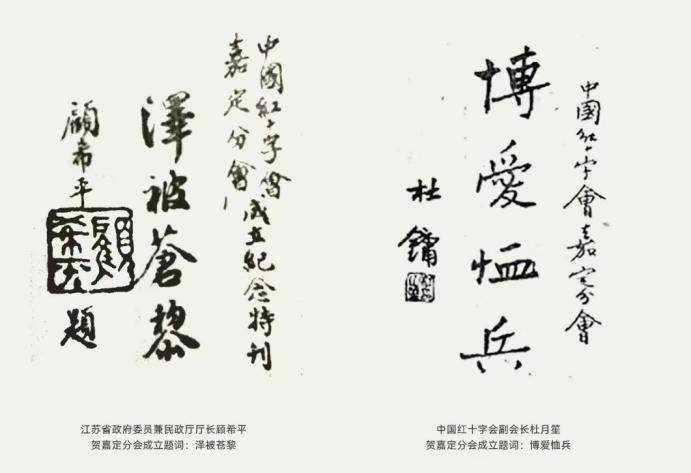 中國紅十字會
嘉定分會成立紀念特刊
澤被蒼黎
顧希平
題
江苏省政府委员兼民政厅厅长顾希平
贺嘉定分会成立题词：泽被苍黎
中國紅十字會嘉定分會
博愛恤兵
杜鏞
中国红十字会副会长杜月笙
贺嘉定分会成立题词：博爱恤兵